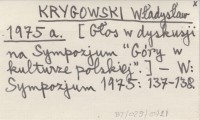 KRYGOWSKI Władysław
1975 a. [Głos w dyskusji
na Sympozjum "Góry w
kulturze polskiej".] – W:
Sympozjum 1975: 137-138